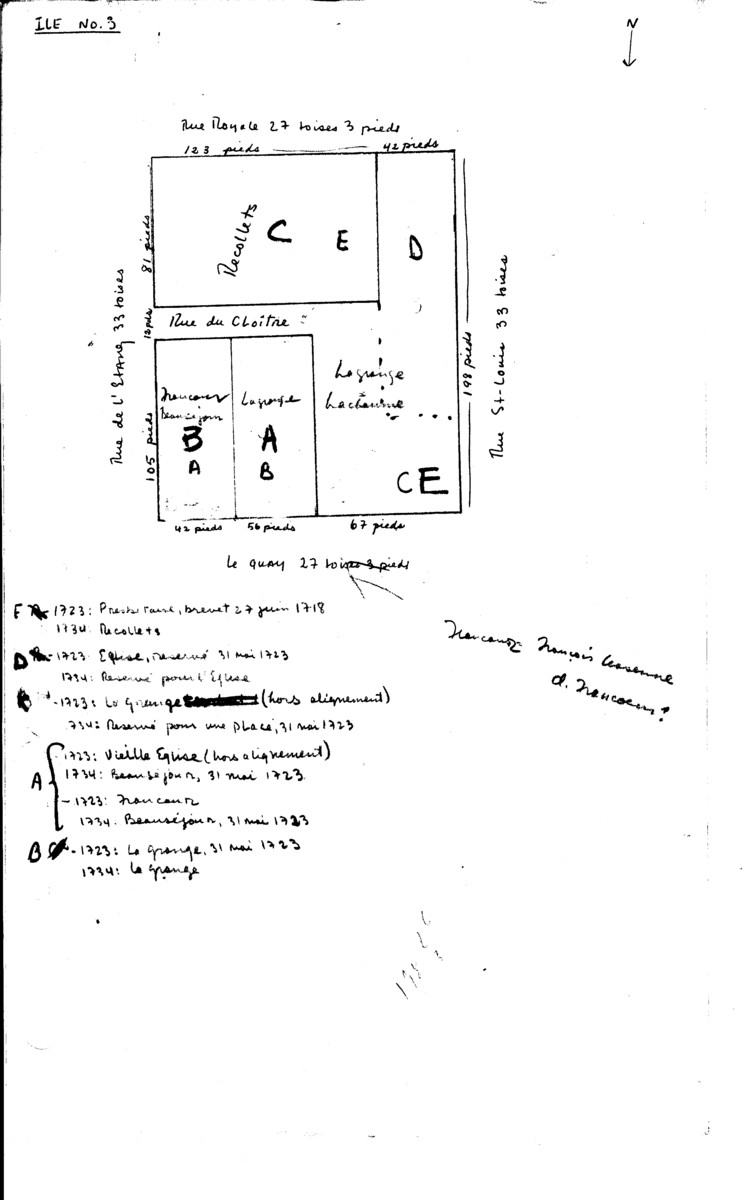 ILE NO. 3
N
Rue Royale 27 toises 3 pieds
123 pieds
42 pieds
81 pieds
Recollets
C
E
D
Rue de l'Etang 33 toises
Rue du Cloître
198 pieds
Rue St-Louis 33 toises
105 pieds
Francoeur
Beauséjour
B
A
Lagrange
A
B
Lagrange
Lachaume
C E
42 pieds
56 pieds
67 pieds
Le quay 27 toises 3 pieds
E - 1723: Presbitaire, brevet 27 juin 1718
1734: Recollets
D - 1723: Eglise, reservé 31 mai 1723
1734: Reservé pour l'Eglise
- 1723: La Grange (hors alignement)
1734: Reservé pour une place, 31 mai 1723
A
1723: Vieille Eglise (hors alignement)
1734: Beauséjour, 31 mai 1723
- 1723: Francoeur
1734: Beauséjour, 31 mai 1723
B - 1723: La Grange, 31 mai 1723
1734: La Grange
François
d. Francoeur?